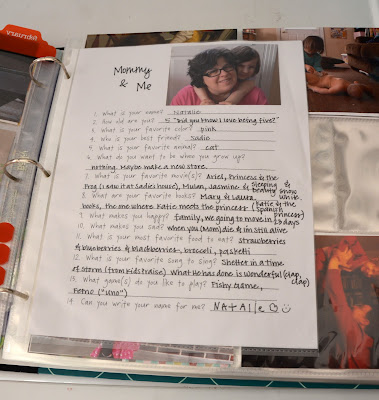 Mommy
& Me
1. What is your name? Natalie
2. How old are you? 5 "Did you know I love being five?"
3. What is your favorite color? pink
4. Who is your best friend? Sadie
5. What is your favorite animal? cat
6. What do you want to be when you grow up?
nothing. Maybe make a new store.
7. What is your favorite movie(s)? Ariel, Princess & the
Frog (I saw it at Sadie's house), Mulan, Jasmine & Sleeping Beauty & Snow White
8. What are your favorite books? Mary & Laura
books, the one where Katie meets the princess (Katie & the Spanish princess)
9. What makes you happy? family, we going to move in 10 days
10. What makes you sad? when you (Mom) die & i'm still alive
11. What is your most favorite food to eat? strawberries
& blueberries & blackberries, broccoli, pasketti
12. What is your favorite song to sing? Shelter in a time
of storm (from Kids4Praise) What he has done is wonderful (clap, clap)
13. What game(s) do you like to play? Fishy Game,
Petro ("uno")
14. Can you write your name for me? NAtAlie